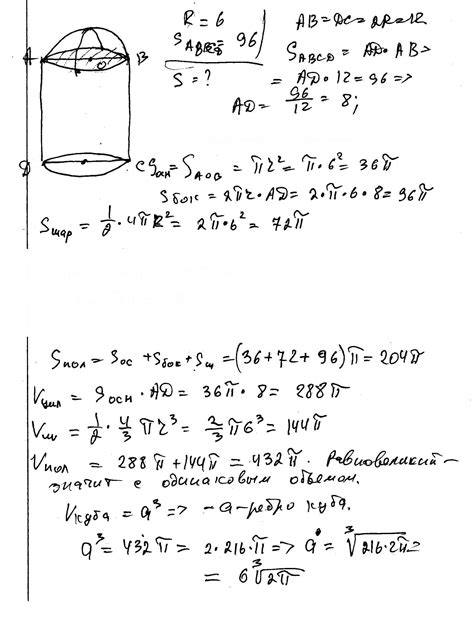 R = 6
S ABCD = 96
S = ?
AB = DC = 2R = 12
S ABCD = AD · AB =
= AD · 12 = 96 =>
AD = 96/12 = 8;
A
B
O
D
C
Sосн = S AOB = πr² = π · 6² = 36π
Sбок = 2πr · AD = 2 · π · 6 · 8 = 96π
Sшар = 1/2 · 4πR² = 2π · 6² = 72π
Sпол = Sос + Sбок + Sш = (36 + 72 + 96)π = 204π
Vцил = Sосн · AD = 36π · 8 = 288π
Vш = 1/2 · 4/3 πr³ = 2/3 π6³ = 144π
Vпол = 288π + 144π = 432π. Равновеликий –
значит с одинаковым объемом.
Vкуба = a³ => – a – ребро куба.
a³ = 432π = 2 · 216 · π => a = ∛216·2π =
= 6∛2π